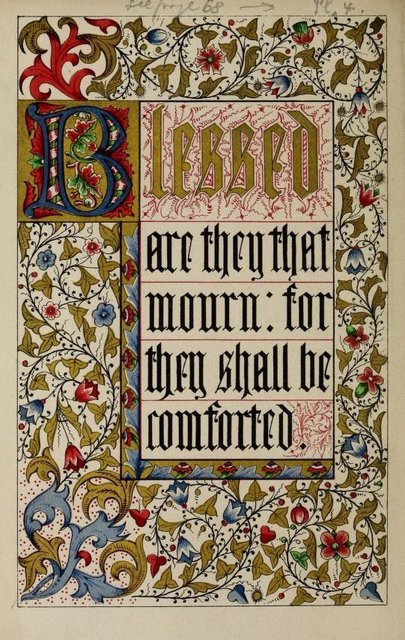 See page 68 → Pl. 4.
Blessed
are they that
mourn: for
they shall be
comforted.